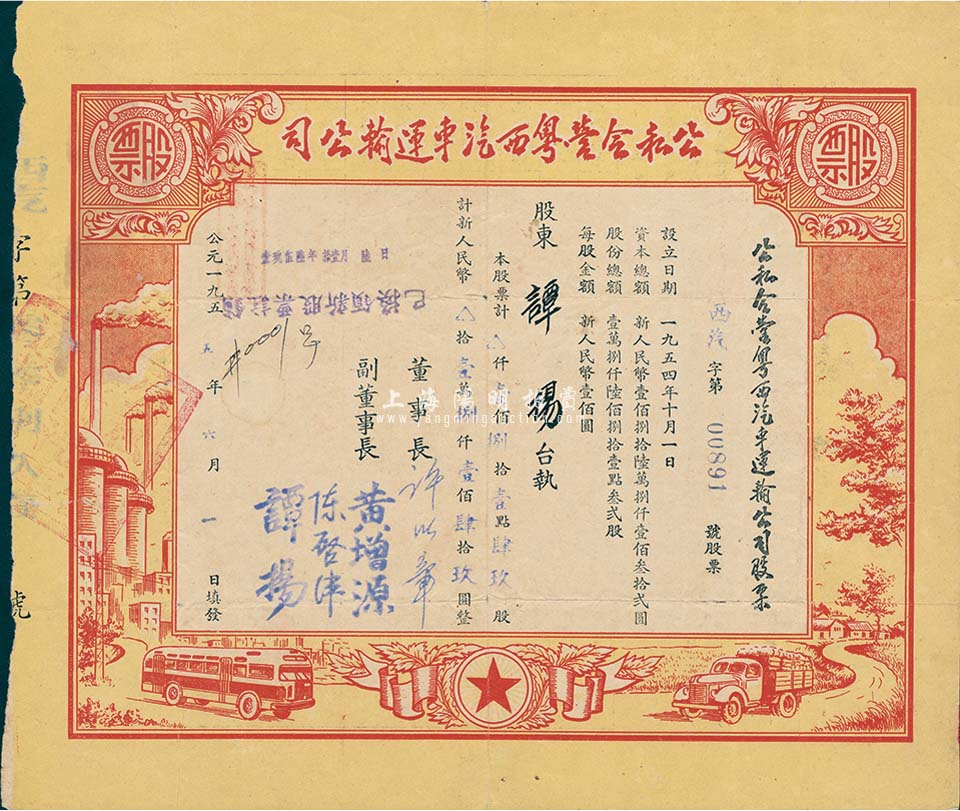 公私合營粵西汽車運輸公司
股票
股票
公私合營粵西汽車運輸公司股票
西汽 字第 00891 號股票
設立日期 一九五四年十月一日
資本總額 新人民幣壹佰捌拾陸萬捌仟壹佰叁拾貳圓
股份總額 壹萬捌仟陸佰捌拾壹點叁貳股
每股金額 新人民幣壹佰圓
股東 譚揚 台執
本股票計 △仟壹佰捌拾壹點肆玖股
計新人民幣 △拾壹萬捌仟壹佰肆拾玖圓整
董事長 許以章
副董事長
黄增源
陈啓津
譚揚
已換領新股票註銷
#0001号
公元一九五 年六月一日填發
字第
號
上海陽明拍賣
www.yangmingauction.com